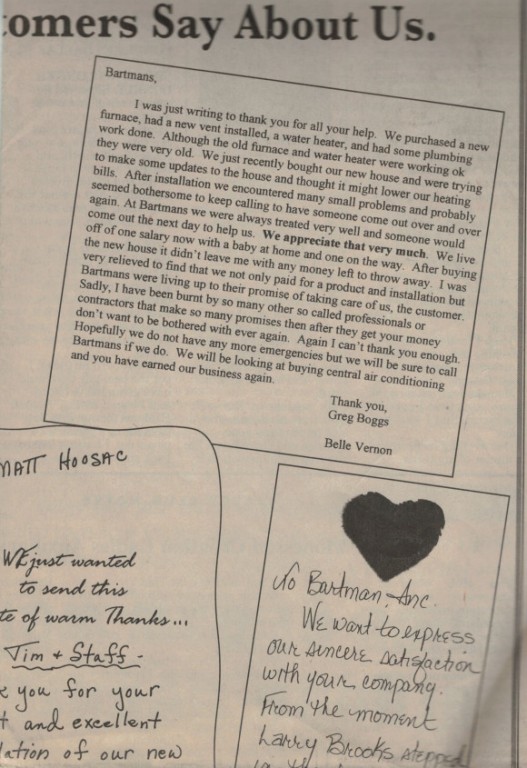 tomers Say About Us.
Bartmans,
I was just writing to thank you for all your help. We purchased a new
furnace, had a new vent installed, a water heater, and had some plumbing
work done. Although the old furnace and water heater were working ok
they were very old. We just recently bought our new house and were trying
to make some updates to the house and thought it might lower our heating
bills. After installation we encountered many small problems and probably
seemed bothersome to keep calling to have someone come out over and over
again. At Bartmans we were always treated very well and someone would
come out the next day to help us. We appreciate that very much. We live
off of one salary now with a baby at home and one on the way. After buying
the new house it didn't leave me with any money left to throw away. I was
very relieved to find that we not only paid for a product and installation but
Bartmans were living up to their promise of taking care of us, the customer.
Sadly, I have been burnt by so many other so called professionals or
contractors that make so many promises then after they get your money
don't want to be bothered with ever again. Again I can't thank you enough.
Hopefully we do not have any more emergencies but we will be sure to call
Bartmans if we do. We will be looking at buying central air conditioning
and you have earned our business again.
Thank you,
Greg Boggs
Belle Vernon
MATT HOOSAC
We just wanted
to send this
te of warm Thanks...
Tim + Staff -
k you for your
t and excellent
lation of our new
To Bartman, Inc.
We want to express
our sincere satisfaction
with your company.
From the moment
Larry Brooks stepped